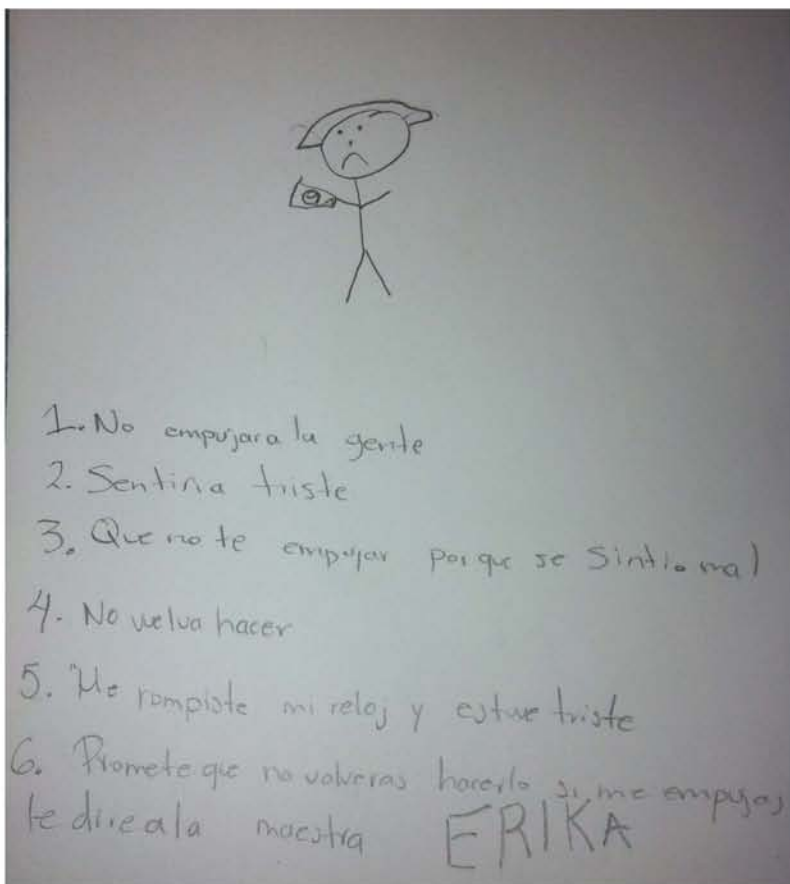 1. No empujara la gente
2. Sentiria triste
3. Que no te empujar porque se Sintio mal
4. No vuelva hacer
5. "Me rompiste mi reloj y estuve triste
6. Promete que no volveras hacerlo si me empujas
te dire a la maestra ERIKA